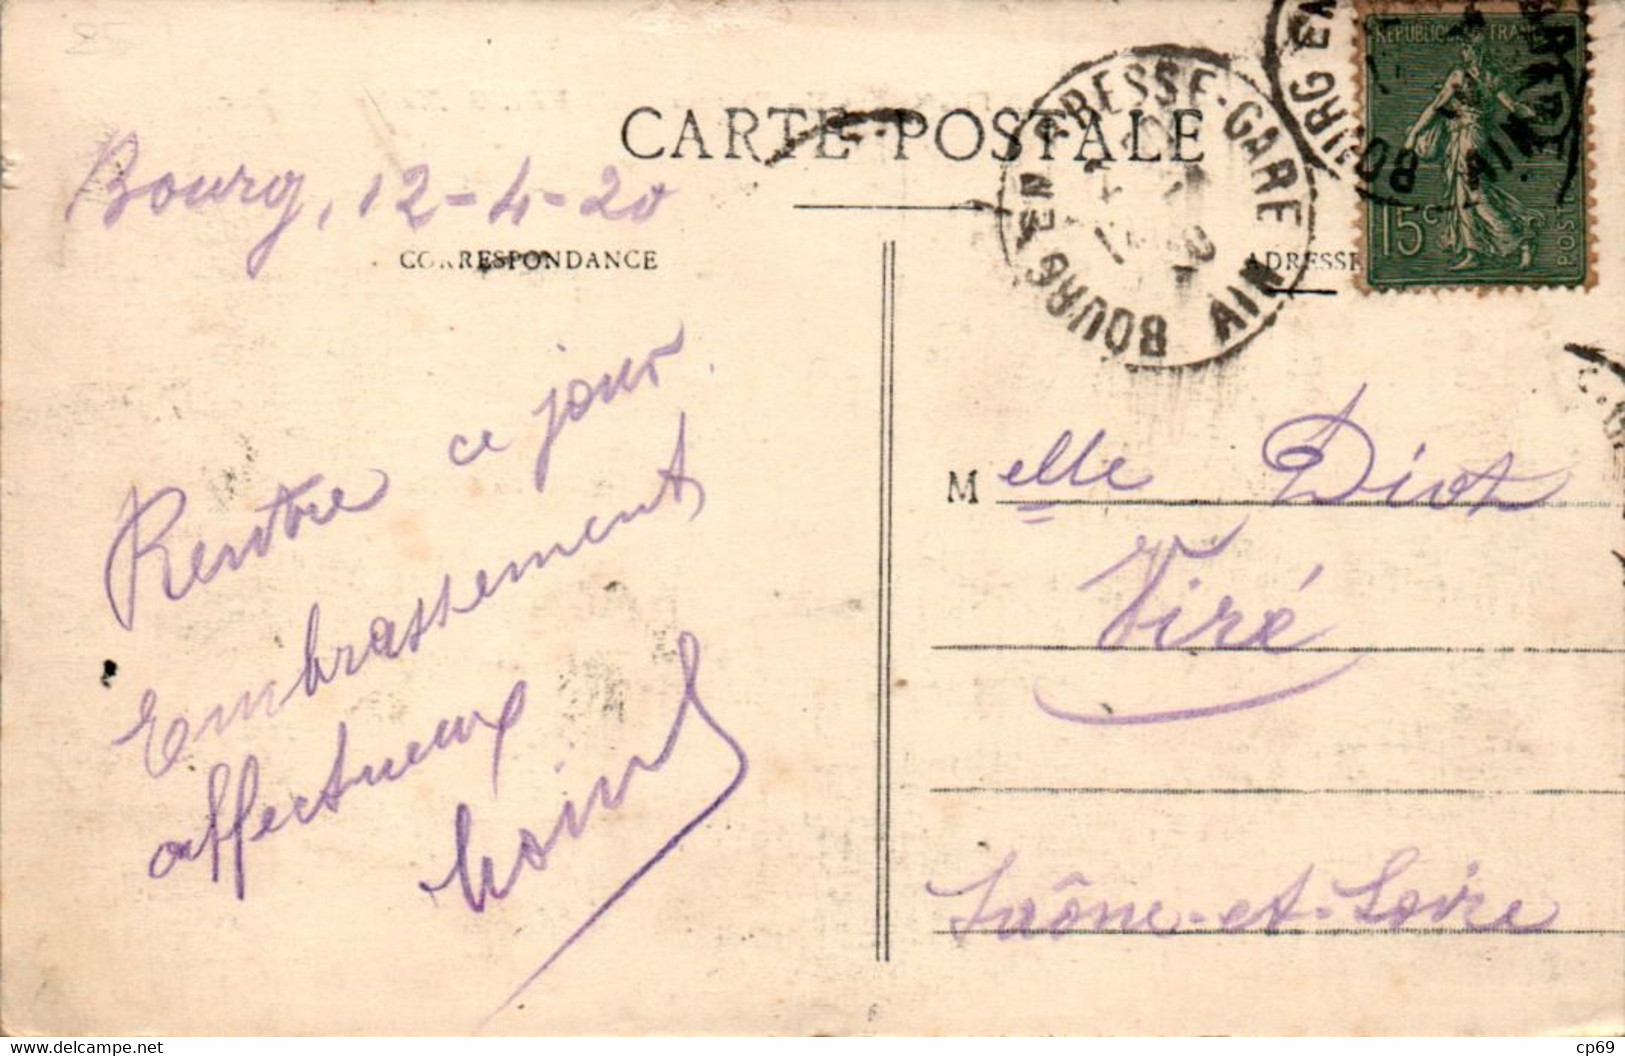 85
CARTE POSTALE
Bourg, 12-4-20
CORRESPONDANCE
ADRESSE
REPUBLIQUE FRANÇAISE
15c
POSTES
BOURG EN BRESSE-GARE
AIN
BOURG EN
AIN
Rentrée ce jour.
Embrassement
affectueux
M elle Diot
Viré
Saône-et-Loire
www.delcampe.net
cp69